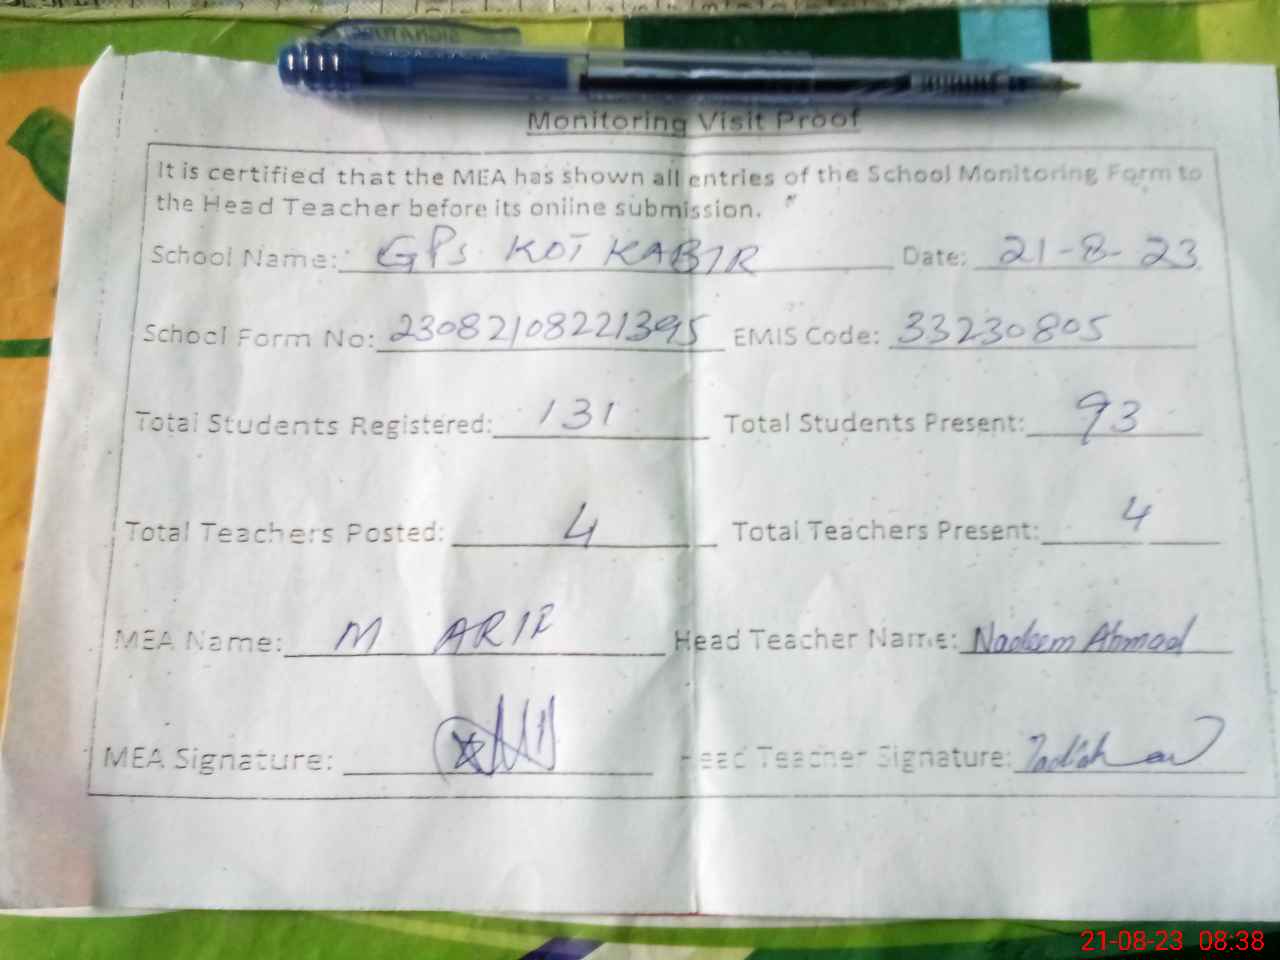 Monitoring Visit Proof
It is certified that the MEA has shown all entries of the School Monitoring Form to
the Head Teacher before its online submission.
School Name: GPS KOT KABIR Date: 21-8-23
School Form No: 23082108221395 EMIS Code: 33230805
Total Students Registered: 131 Total Students Present: 93
Total Teachers Posted: 4 Total Teachers Present: 4
MEA Name: M ARIF Head Teacher Name: Nadeem Ahmad
MEA Signature: Head Teacher Signature:
21-08-23 08:38